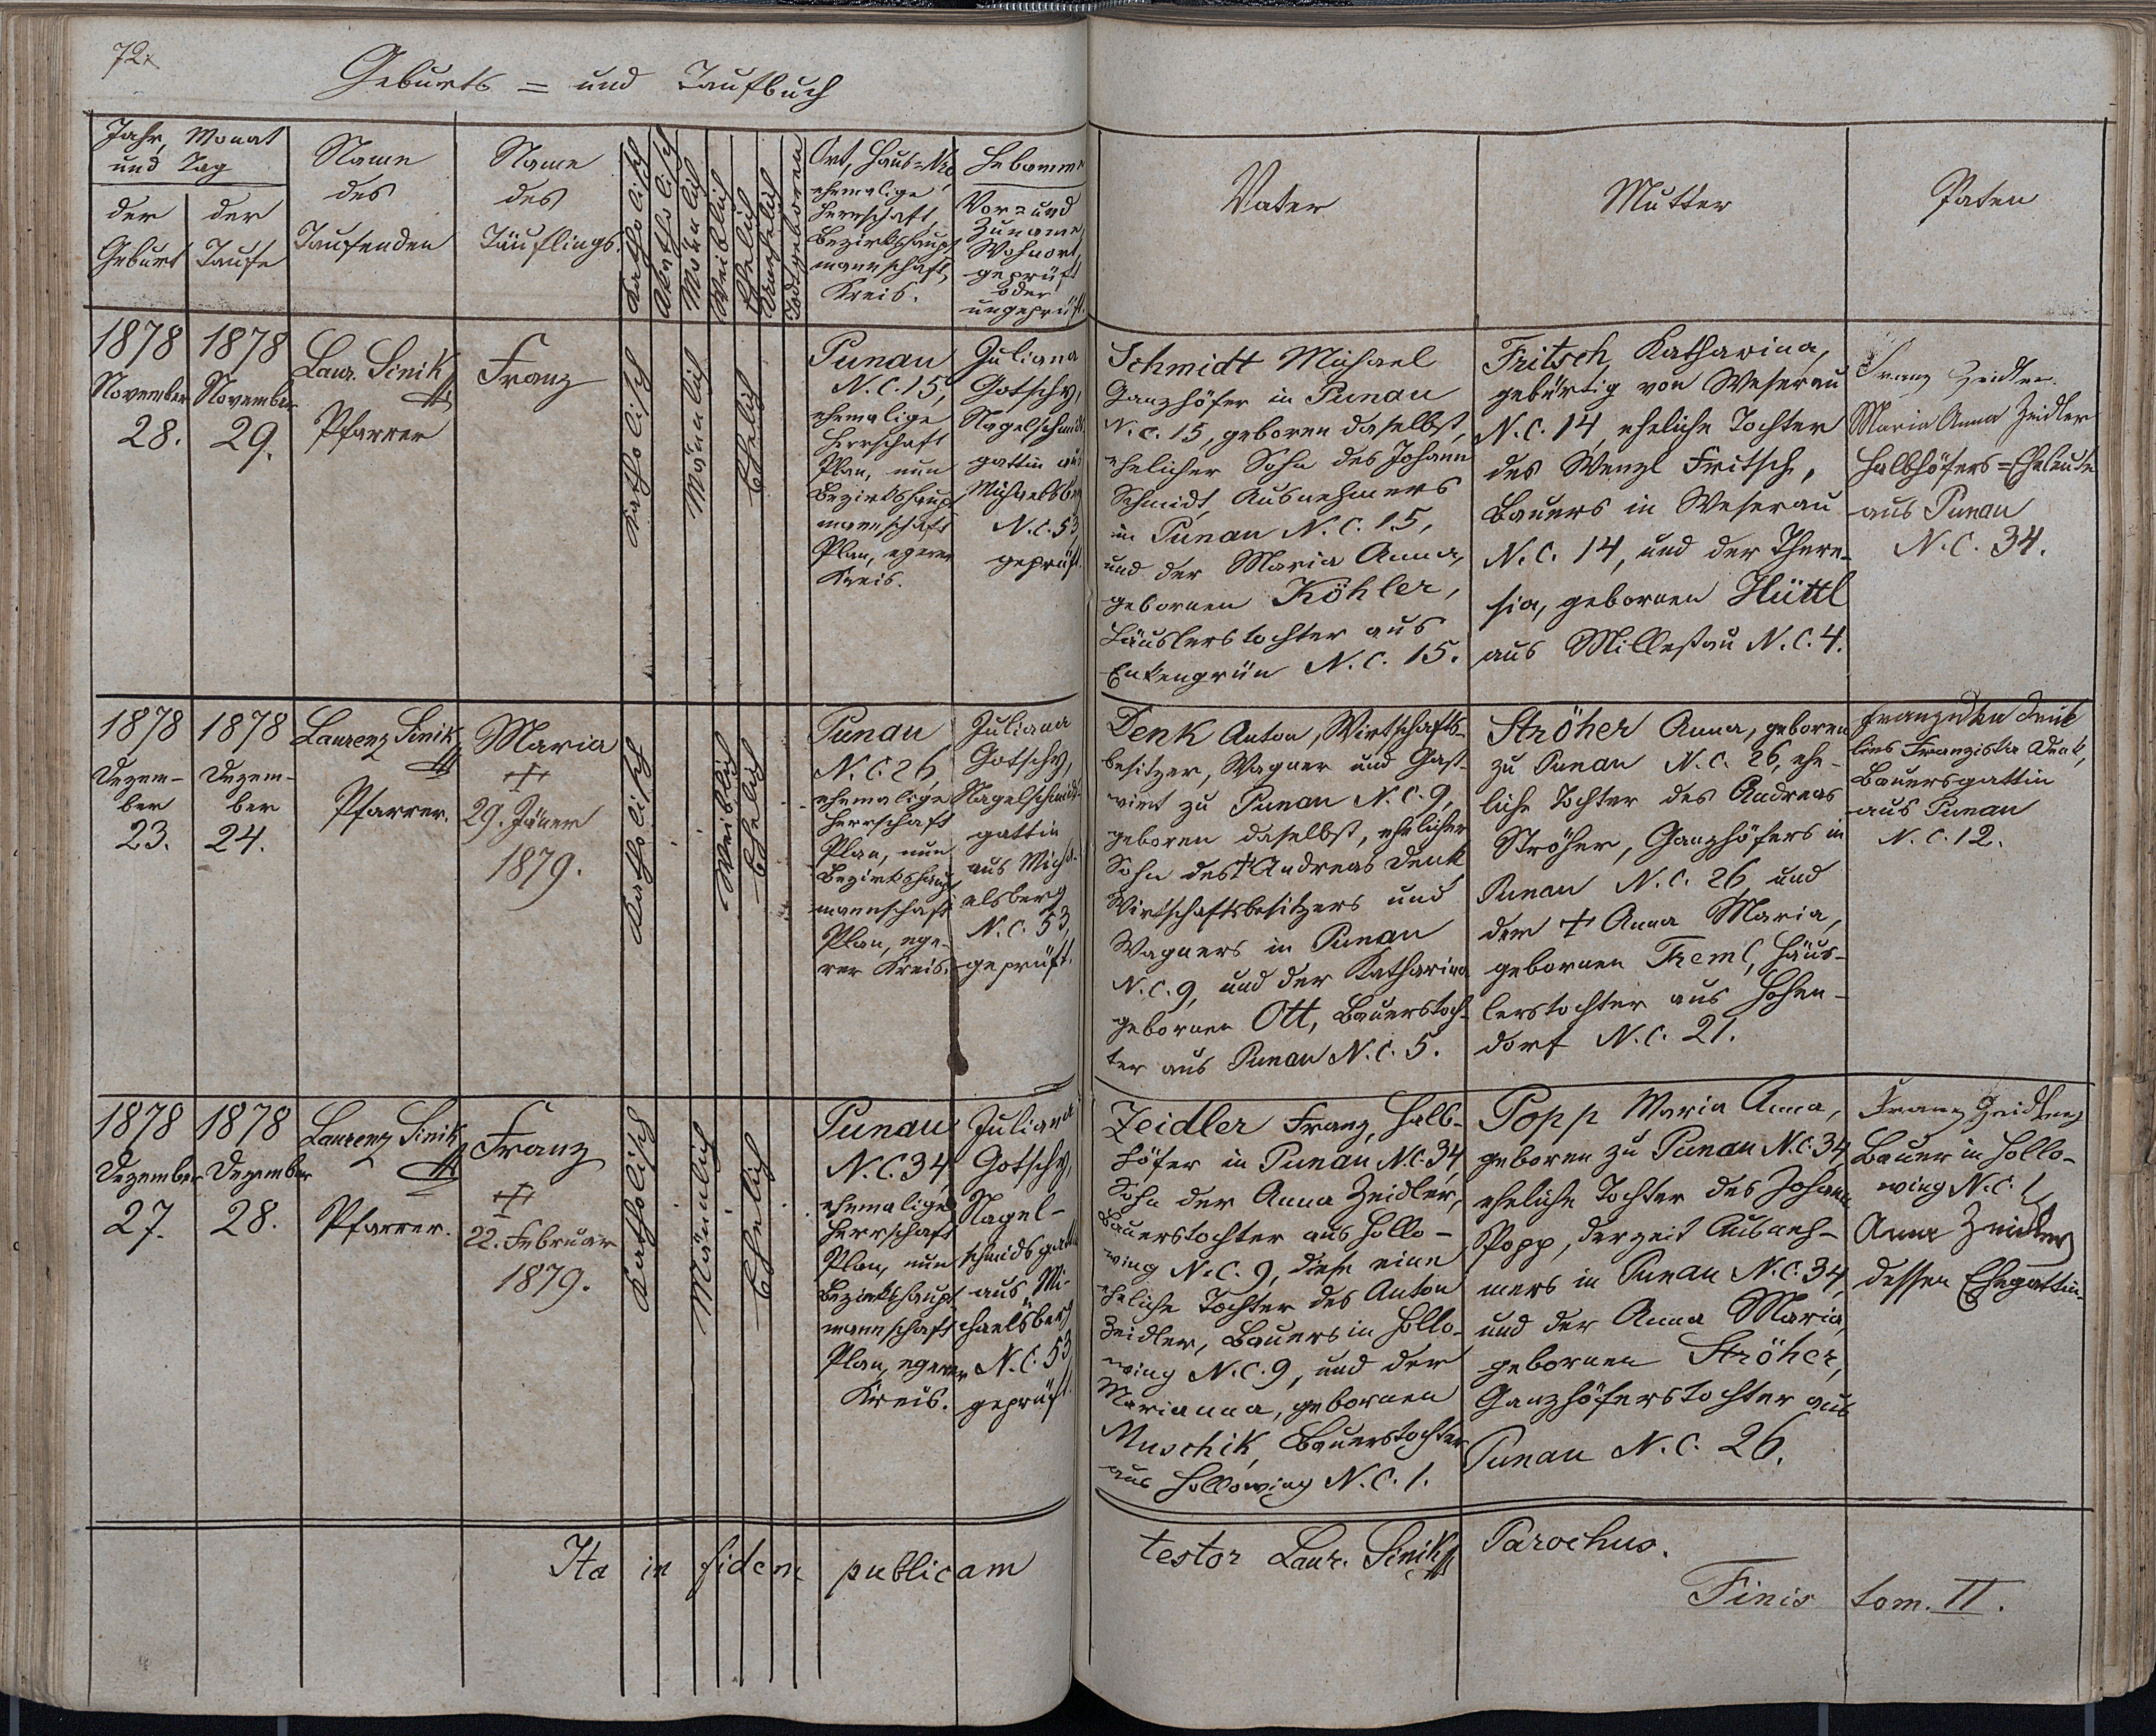 72.
Geburts = und Taufbuch
Jahr, Monat
und Tag
der
Geburt
der
Taufe
Name
des
Taufenden
Name
des
Täuflings.
Katholisch
Akatholisch
Männlich
Weiblich
Ehelich
Unehelich
Todtgeboren
Ort, Haus=Nro,
ehemalige
Herrschaft,
Bezirkshaupt
mannschaft,
Kreis.
Hebamme
Vor= und
Zuname,
Wohnort,
geprüft
oder
ungeprüft.
Vater
Mutter
Paten
1878
November
28.
1878
November
29.
Laur. Sinik
Pfarrer
Franz
Katholisch
Männlich
Ehelich
Punau
N.C. 15,
ehemalige
Herrschaft
Plan, nun
Bezirkshaupt
mannschaft
Plan, egerer
Kreis.
Juliana
Gotschy,
Nagelschmids
gattin aus
Michaelsberg
N.C. 53,
geprüft.
Schmidt Michael
Ganzhöfer in Punau
N.C. 15, geboren daselbst,
ehelicher Sohn des Johann
Schmidt, Ausnehmers
in Punau N.C. 15,
und der Maria Anna,
gebornen Köhler,
Häuslerstochter aus
Enkengrün N.C. 15.
Fritsch Katharina,
gebürtig von Weserau
N.C. 14, eheliche Tochter
des Wenzl Fritsch,
Bauers in Weserau
N.C. 14, und der There-
sia, gebornen Hüttl
aus Millestau N.C. 4.
Franz Zeidler
Maria Anna Zeidler
Halbhöfers=Eheleute
aus Punau
N.C. 34.
1878
Dezem-
ber
23.
1878
Dezem-
ber
24.
Laurenz Sinik
Pfarrer.
Maria
+
29. Jäner
1879.
Katholisch
Weiblich
Ehelich
Punau
N.C. 26,
ehemalige
Herrschaft
Plan, nun
Bezirkshaupt
mannschaft
Plan, ege-
rer Kreis.
Juliana
Gotschy,
Nagelschmids-
gattin
aus Micha-
elsberg
N.C. 53,
geprüft.
Denk Anton, Wirtschafts-
besitzer, Wagner und Gast-
wirt zu Punau N.C. 9,
geboren daselbst, ehelicher
Sohn des + Andreas Denk
Wirtschaftsbesitzers und
Wagners in Punau
N.C. 9, und der Katharina
gebornen Ott, Bauerstoch-
ter aus Punau N.C. 5.
Ströher Anna, geboren
zu Punau N.C. 26, ehe-
liche Tochter des Andreas
Ströher, Ganzhöfers in
Punau N.C. 26 und
der + Anna Maria,
gebornen Treml, Häus-
lerstochter aus Hohen-
dorf N.C. 21.
Franziska Denk,
Bauersgattin
aus Punau
N.C. 12.
1878
Dezember
27.
1878
Dezember
28.
Laurenz Sinik
Pfarrer.
Franz
+
22. Februar
1879.
Katholisch
Männlich
Ehelich
Punau
N.C. 34,
ehemalige
Herrschaft
Plan, nun
Bezirkshaupt
mannschaft
Plan, egerer
Kreis.
Juliana
Gotschy,
Nagel-
schmidsgattin
aus Mi-
chaelsberg
N.C. 53
geprüft.
Zeidler Franz, Halb-
höfer in Punau N.C. 34
Sohn der Anna Zeidler,
Bauerstochter aus Hollo-
wing N.C. 9, diese eine
eheliche Tochter des Anton
Zeidler, Bauers in Hollo-
wing N.C. 9, und der
Marianna, gebornen
Muschik, Bauerstochter
aus Hollowing N.C. 1.
Popp Maria Anna,
geboren zu Punau N.C. 34
eheliche Tochter des Johann
Popp, derzeit Ausneh-
mers in Punau N.C. 34,
und der Anna Maria,
gebornen Ströher,
Ganzhöferstochter aus
Punau N.C. 26.
Franz Zeidler
Bauer in Hollo-
wing N.C. 1,
Anna Zeidler
dessen Ehegattin.
Ita in fidem publicam testor Laur. Sinik Parochus.
Finis tom. II.